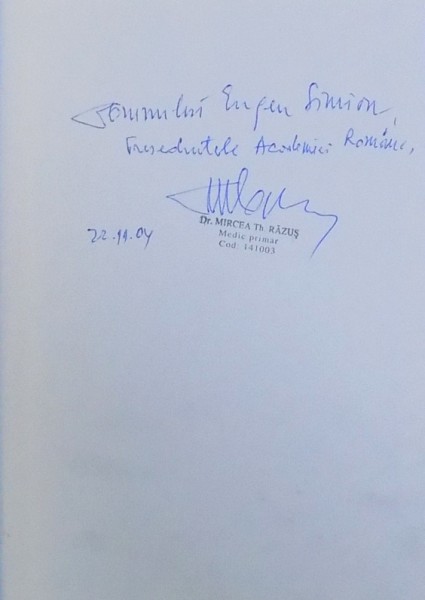 Domnului Eugen Simion,
Președintele Academiei Române,
Dr. MIRCEA Th. RĂZUȘ
Medic primar
Cod: 141003
22.11.04